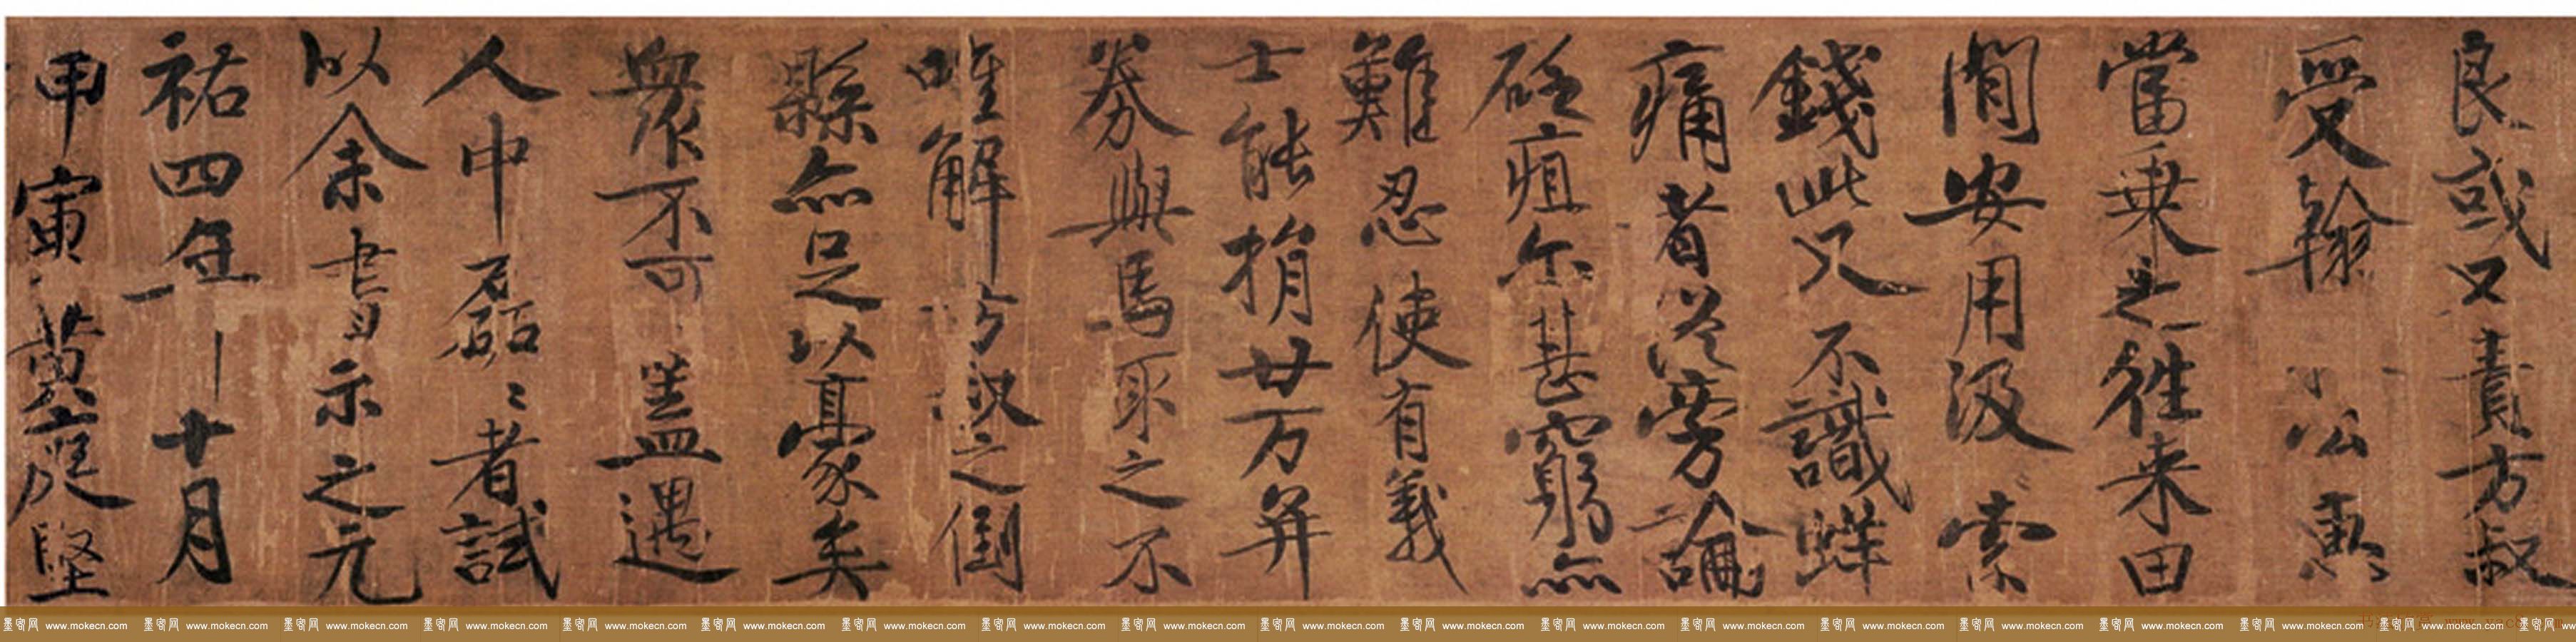 良或又責方叔
受翰公惠
當乗之往来田
間安用汲索
錢此又不識蛘
痛者從旁論
砭疽尓甚窮亦
難忍使有義
士能捐廿万并
券與馬取之不
唯解方叔之倒
縣亦足以豪矣
衆不可盖遇
人中磊〻者試
以余書示之元
祐四年十月
甲寅黄庭堅
墨密网 www.mokecn.com 墨密网 www.mokecn.com 墨密网 www.mokecn.com 墨密网 www.mokecn.com 墨密网 www.mokecn.com 墨密网 www.mokecn.com 墨密网 www.mokecn.com 墨密网 www.mokecn.com 墨密网 www.mokecn.com 墨密网 www.mokecn.com 墨密网 www.mokecn.com 墨密网 www.mokecn.com 墨密网 www.mokecn.com 墨密网 www.mokecn.com 墨密网 www.mokecn.com 墨密网 www.mokecn.com 墨密网 www.mokecn.com 墨密网 www.mokecn.com